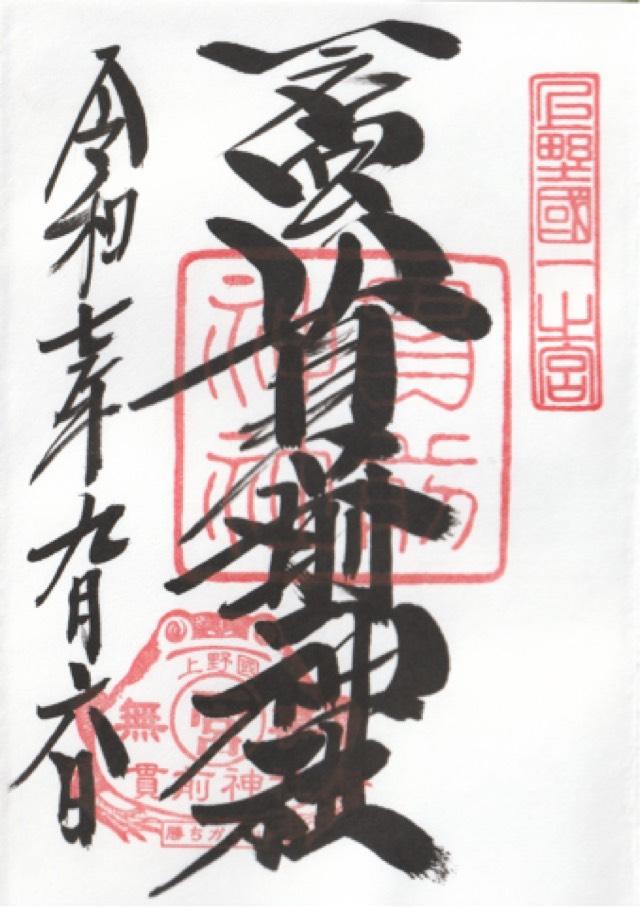 上野國一之宮
一之宮貫前神社
貫前
神社
令和七年九月六日
上野國
無
貫前神
勝ちが